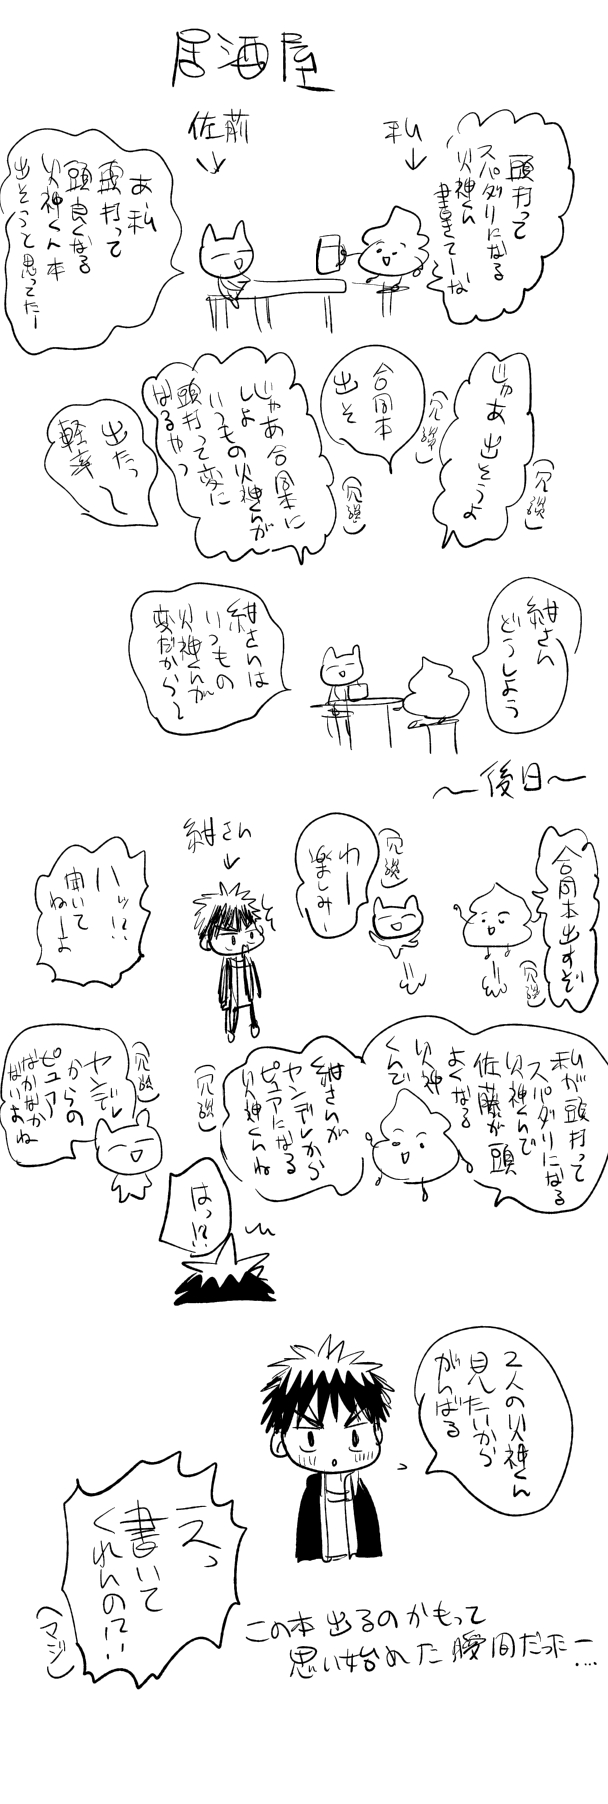 居酒屋
佐藤
私
頭打って
スパダリになる
火神くん
書きてーな
あ、私
頭打って
頭良くなる
火神くん本
出そうと思ってたー
じゃあ出そうよ
(冗談)
合同本
出そ
(冗談)
じゃあ合同本に
しよ
いつもの火神くんが
頭打って変に
なるやつ
(冗談)
出たっ
軽率〜
紺さん
どうしよう
紺さんは
いつもの
火神くんが
変だから〜
〜後日〜
合同本出すぞ
(冗談)
わー
楽しみー
(冗談)
紺さん
ハッ!?
聞いて
ねーよ
私が頭打って
スパダリになる
火神くんで
佐藤が頭
よくなる
火神
くんで
紺さんが
ヤンデレから
ピュアになる
火神くんね
(冗談)
ヤンデレ
からの
ピュア
なかなか
ないよね
(冗談)
はっ!?
2人の火神くん
見たいから
がんばる
えっ
書いて
くれんの!?!
(マジ)
この本出るのかもって
思い始めた瞬間だったー…